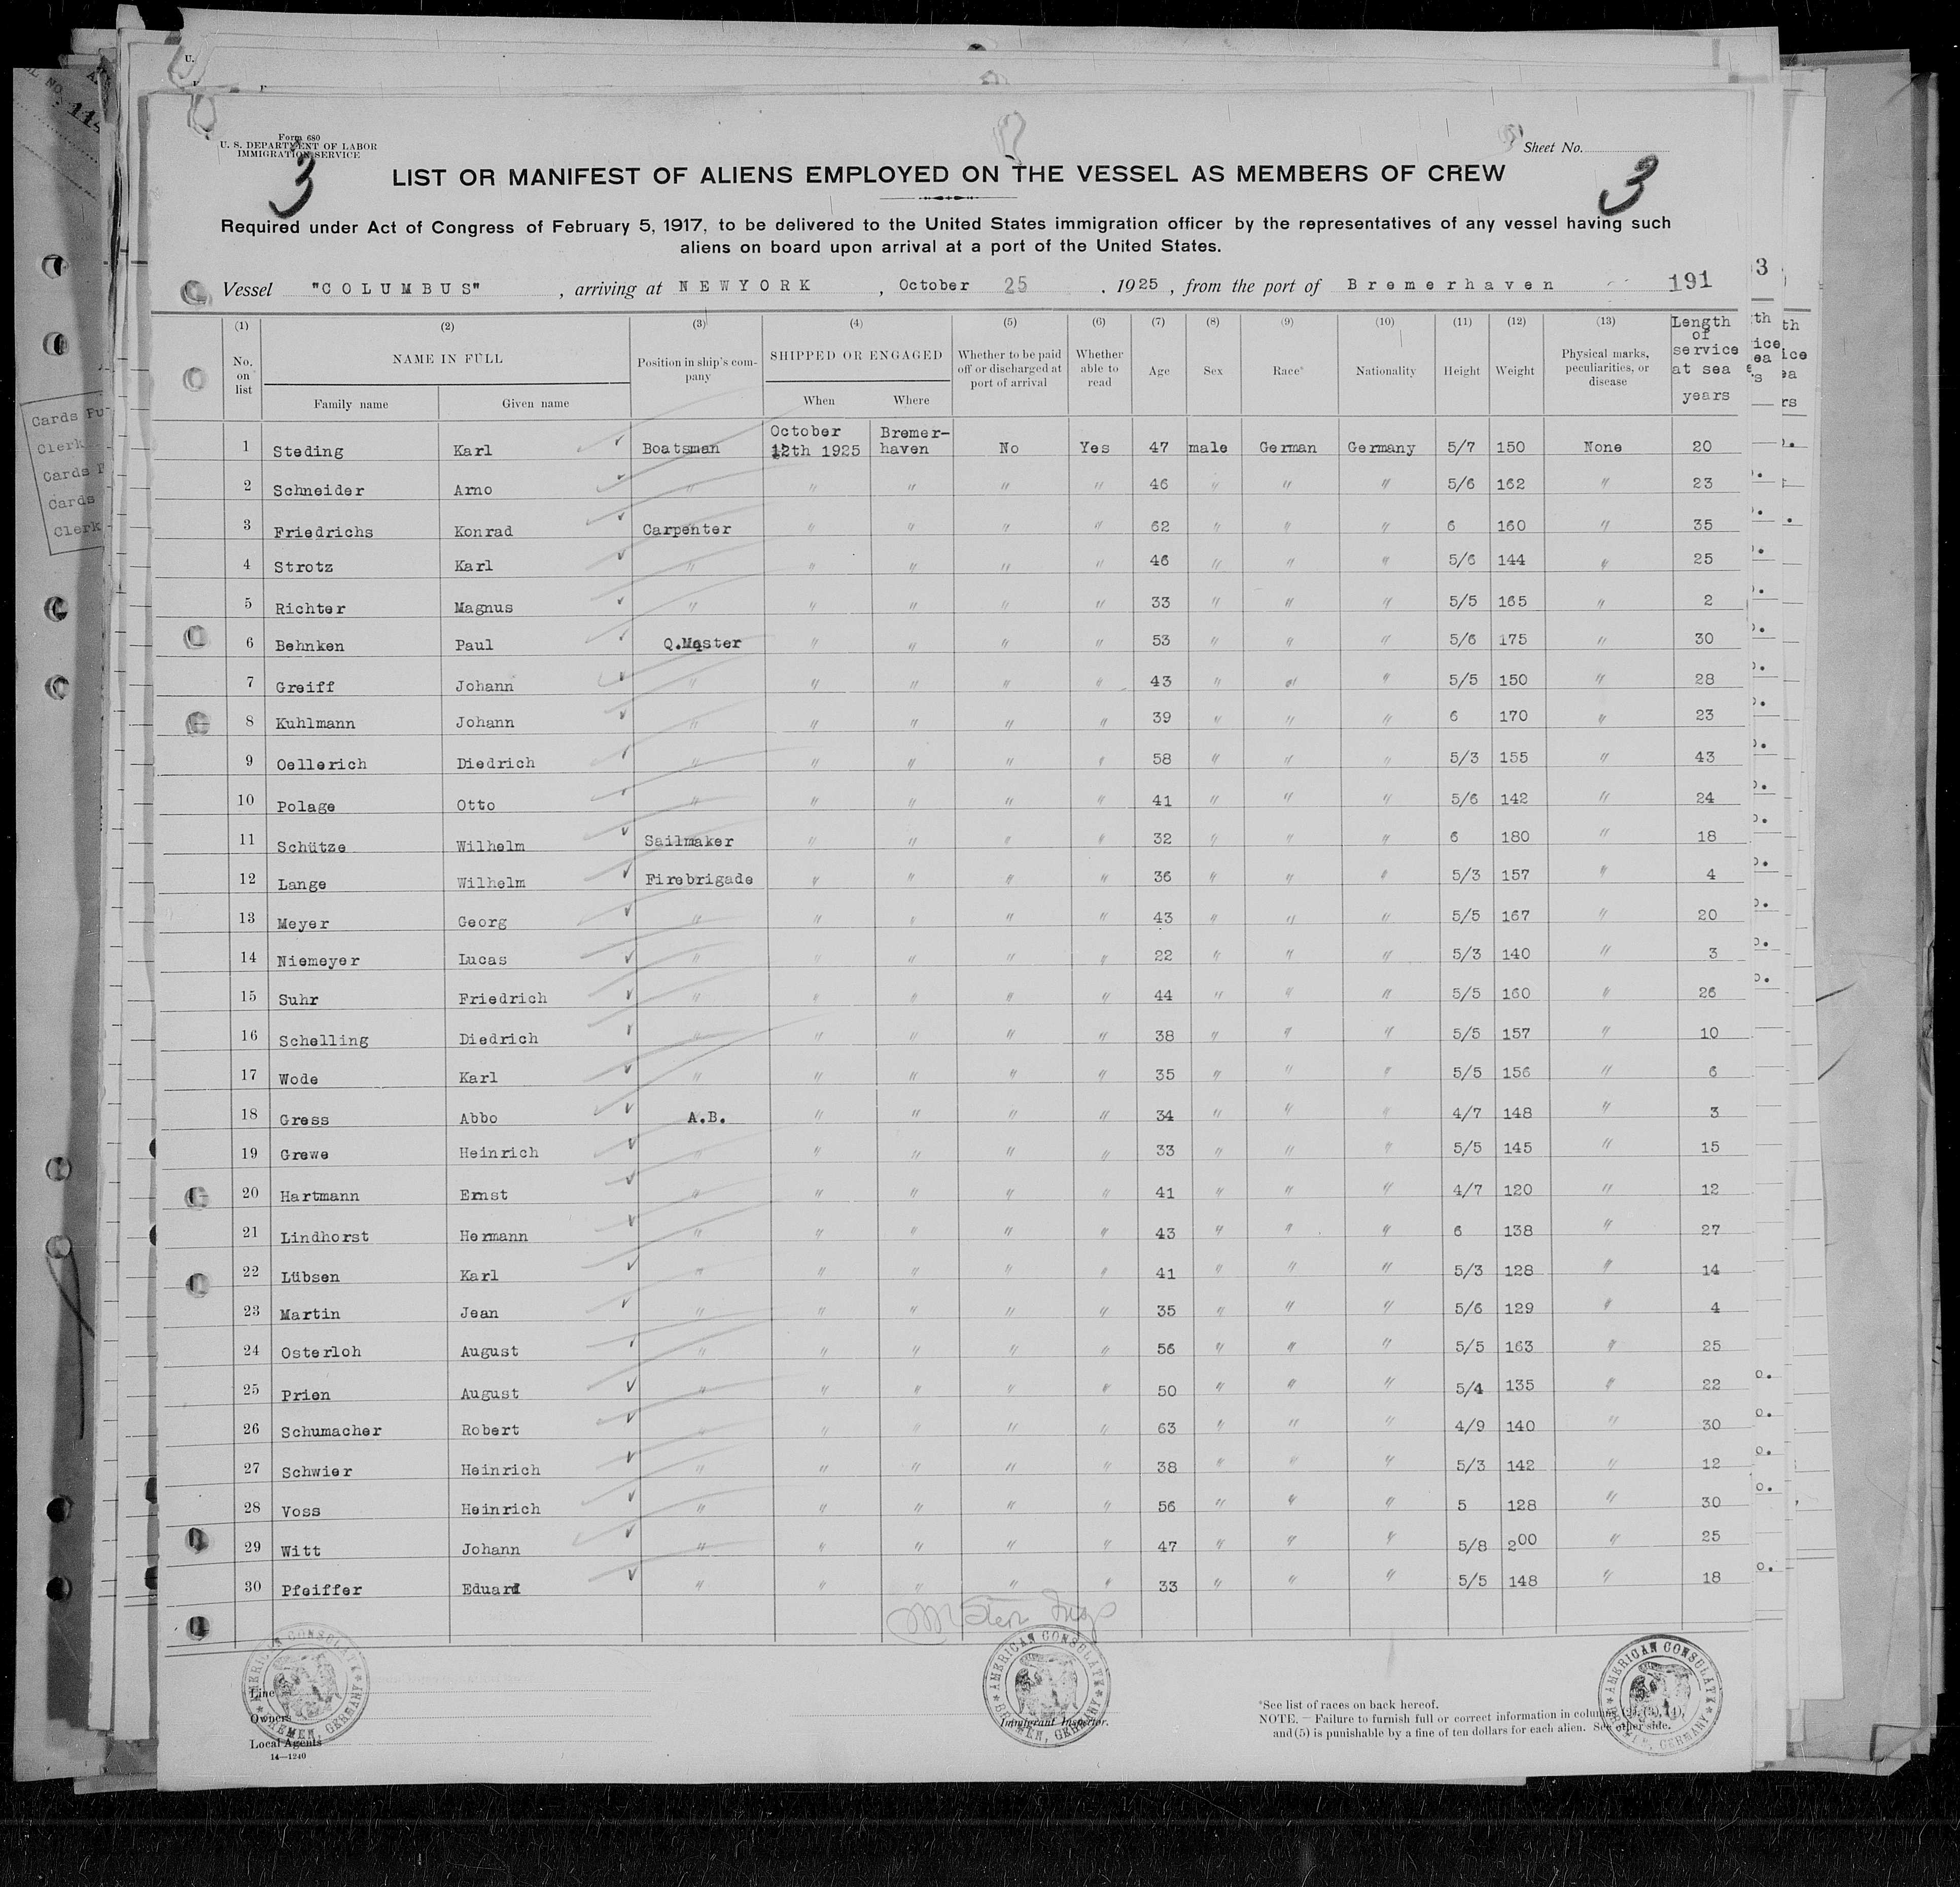 Form 680
U. S. DEPARTMENT OF LABOR
IMMIGRATION SERVICE
Sheet No.
3
3
LIST OR MANIFEST OF ALIENS EMPLOYED ON THE VESSEL AS MEMBERS OF CREW
Required under Act of Congress of February 5, 1917, to be delivered to the United States immigration officer by the representatives of any vessel having such
aliens on board upon arrival at a port of the United States.
Vessel "COLUMBUS", arriving at NEWYORK, October 25, 1925, from the port of Bremerhaven 191
(1) (2) (3) (4) (5) (6) (7) (8) (9) (10) (11) (12) (13)
No. on list NAME IN FULL Family name Given name Position in ship's company SHIPPED OR ENGAGED When Where Whether to be paid off or discharged at port of arrival Whether able to read Age Sex Race* Nationality Height Weight Physical marks, peculiarities, or disease Length of service at sea years
1 Steding Karl Boatsman October 12th 1925 Bremer-haven No Yes 47 male German Germany 5/7 150 None 20
2 Schneider Arno " " " " " 46 " " " 5/6 162 " 23
3 Friedrichs Konrad Carpenter " " " " 62 " " " 6 160 " 35
4 Strotz Karl " " " " " 46 " " " 5/6 144 " 25
5 Richter Magnus " " " " " 33 " " " 5/5 165 " 2
6 Behnken Paul Q.Master " " " " 53 " " " 5/6 175 " 30
7 Greiff Johann " " " " " 43 " " " 5/5 150 " 28
8 Kuhlmann Johann " " " " " 39 " " " 6 170 " 23
9 Oellerich Diedrich " " " " " 58 " " " 5/3 155 " 43
10 Polage Otto " " " " " 41 " " " 5/6 142 " 24
11 Schütze Wilhelm Sailmaker " " " " 32 " " " 6 180 " 18
12 Lange Wilhelm Firebrigade " " " " 36 " " " 5/3 157 " 4
13 Meyer Georg " " " " " 43 " " " 5/5 167 " 20
14 Niemeyer Lucas " " " " " 22 " " " 5/3 140 " 3
15 Suhr Friedrich " " " " " 44 " " " 5/5 160 " 26
16 Schelling Diedrich " " " " " 38 " " " 5/5 157 " 10
17 Wode Karl " " " " " 35 " " " 5/5 156 " 6
18 Gress Abbo A.B. " " " " 34 " " " 4/7 148 " 3
19 Grewe Heinrich " " " " " 33 " " " 5/5 145 " 15
20 Hartmann Ernst " " " " " 41 " " " 4/7 120 " 12
21 Lindhorst Hermann " " " " " 43 " " " 6 138 " 27
22 Lübsen Karl " " " " " 41 " " " 5/3 128 " 14
23 Martin Jean " " " " " 35 " " " 5/6 129 " 4
24 Osterloh August " " " " " 56 " " " 5/5 163 " 25
25 Prien August " " " " " 50 " " " 5/4 135 " 22
26 Schumacher Robert " " " " " 63 " " " 4/9 140 " 30
27 Schwier Heinrich " " " " " 38 " " " 5/3 142 " 12
28 Voss Heinrich " " " " " 56 " " " 5 128 " 30
29 Witt Johann " " " " " 47 " " " 5/8 200 " 25
30 Pfeiffer Eduard " " " " " 33 " " " 5/5 148 " 18
AMERICAN CONSULATE BREMEN, GERMANY
AMERICAN CONSULATE BREMEN, GERMANY
AMERICAN CONSULATE BREMEN, GERMANY
Line
Owners
Local Agents
14—1240
Immigrant Inspector.
*See list of races on back hereof.
NOTE. — Failure to furnish full or correct information in columns (2), (3), (4),
and (5) is punishable by a fine of ten dollars for each alien. See other side.
Cards
Clerk
Cards
Cards
Clerk